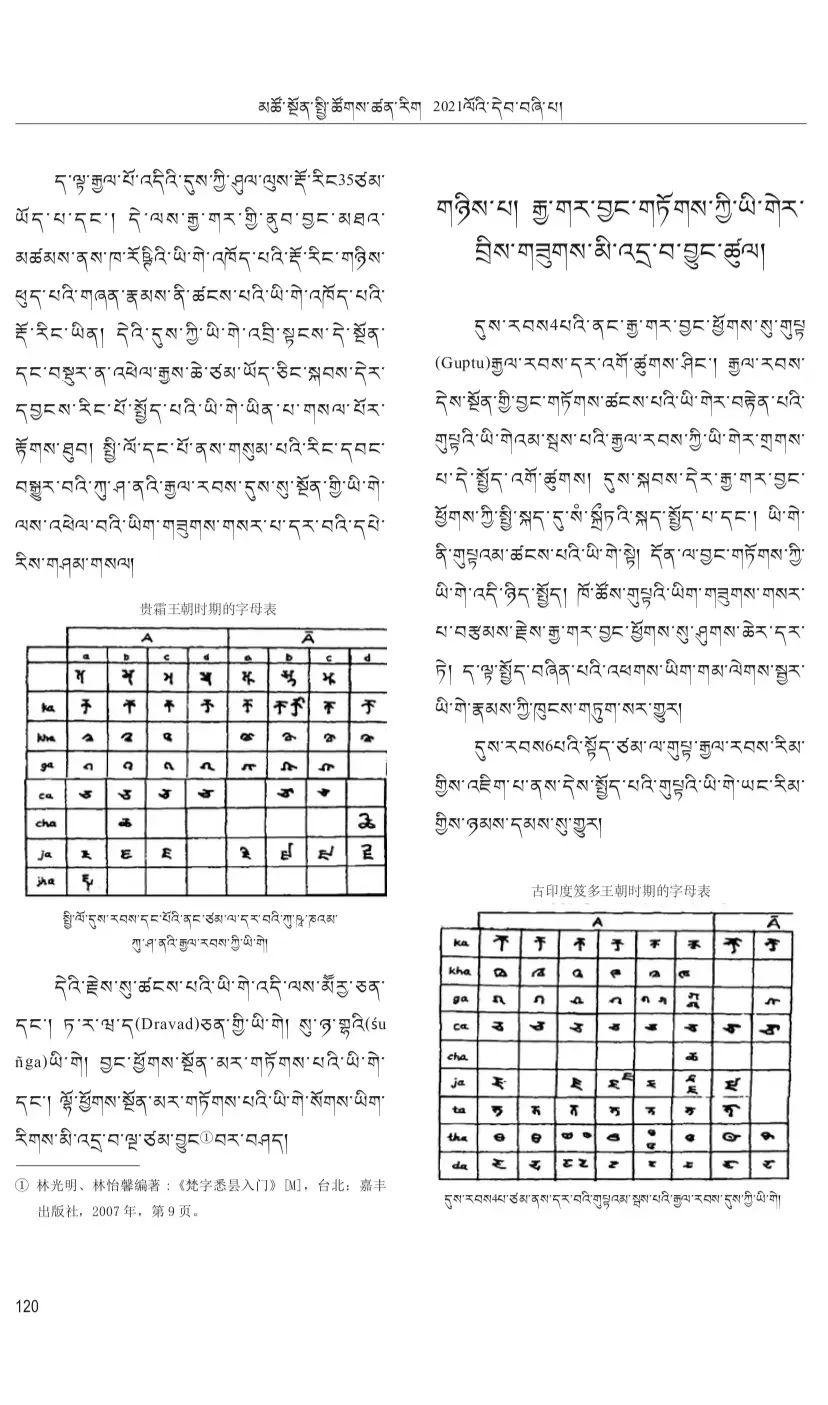 མཚོ་སྔོན་སྤྱི་ཚོགས་ཚན་རིག 2021ལོའི་དེབ་བཞི་པ།
ད་ལྟ་རྒྱལ་པོ་འདིའི་དུས་ཀྱི་ཤུལ་ལུས་རྡོ་རིང35ཙམ་
ཡོད་པ་དང༌། དེ་ལས་རྒྱ་གར་གྱི་ནུབ་བྱང་མཐའ་
མཚམས་ནས་ཁ་རོཥྛིའི་ཡི་གེ་འཁོད་པའི་རྡོ་རིང་གཉིས་
ཕུད་པའི་གཞན་རྣམས་ནི་ཚངས་པའི་ཡི་གེ་འཁོད་པའི་
རྡོ་རིང་ཡིན། དེའི་དུས་ཀྱི་ཡི་གེ་འབྲི་སྟངས་དེ་སྔོན་
དང་བསྡུར་ན་འཕེལ་རྒྱས་ཆེ་ཙམ་ཡོད་ཅིང་སྐབས་དེར་
དབྱངས་རིང་པོ་སྤྱོད་པའི་ཡི་གེ་ཡིན་པ་གསལ་པོར་
རྟོགས་ཐུབ། སྤྱི་ལོ་དང་པོ་ནས་གསུམ་པའི་རིང་དབང་
བསྒྱུར་བའི་ཀུ་ཤ་ནའི་རྒྱལ་རབས་དུས་སུ་སྔོན་གྱི་ཡི་གེ་
ལས་འཕེལ་བའི་ཡིག་གཟུགས་གསར་པ་དར་བའི་དཔེ་
རིས་གཤམ་གསལ།
贵霜王朝时期的字母表
A Ā
a b c d a b c d
ka
kha
ga
ca
cha
ja
jha
ཀུ་ཤ་ནའི་རྒྱལ་རབས་ཀྱི་ཡི་གེ།
དེའི་རྗེས་སུ་ཚངས་པའི་ཡི་གེ་འདི་ལས་མོརྱ་ཅན་
དང༌། ཏ་ར་ཝ་ད(Dravad)ཅན་གྱི་ཡི་གེ། སུ་ཉ་གྷའི(śu
ñga)ཡི་གེ། བྱང་ཕྱོགས་སྔོན་མར་གཏོགས་པའི་ཡི་གེ་
དང༌། ལྷོ་ཕྱོགས་སྔོན་མར་གཏོགས་པའི་ཡི་གེ་སོགས་ཡིག་
རིགས་མི་འདྲ་བ་ལྔ་ཙམ་བྱུང①བར་བཤད།
① 林光明、林怡馨编著:《梵字悉昙入门》[M]，台北：嘉丰
出版社，2007 年，第 9 页。
གཉིས་པ། རྒྱ་གར་བྱང་གཏོགས་ཀྱི་ཡི་གེར་
བྲིས་གཟུགས་མི་འདྲ་བ་བྱུང་ཚུལ།
དུས་རབས4པའི་ནང་རྒྱ་གར་བྱང་ཕྱོགས་སུ་གུཔྟ
(Guptu)རྒྱལ་རབས་དར་འགོ་ཚུགས་ཤིང༌། རྒྱལ་རབས་
དེས་སྔོན་གྱི་བྱང་གཏོགས་ཚངས་པའི་ཡི་གེར་བརྟེན་པའི་
གུཔྟའི་ཡི་གེའམ་སྦས་པའི་རྒྱལ་རབས་ཀྱི་ཡི་གེར་གྲགས་
པ་དེ་སྤྱོད་འགོ་ཚུགས། དུས་སྐབས་དེར་རྒྱ་གར་བྱང་
ཕྱོགས་ཀྱི་སྤྱི་སྐད་དུ་སཾ་སྐྲྀཏའི་སྐད་སྤྱོད་པ་དང༌། ཡི་གེ་
ནི་གུཔྟའམ་ཚངས་པའི་ཡི་གེ་སྟེ། དོན་ལ་བྱང་གཏོགས་ཀྱི་
ཡི་གེ་འདི་ཉིད་སྤྱོད། ཁོ་ཚོས་གུཔྟའི་ཡིག་གཟུགས་གསར་
པ་བརྩམས་རྗེས་རྒྱ་གར་བྱང་ཕྱོགས་སུ་ཤུགས་ཆེར་དར་
ཏེ། ད་ལྟ་སྤྱོད་བཞིན་པའི་འཕགས་ཡིག་གམ་ལེགས་སྦྱར་
ཡི་གེ་རྣམས་ཀྱི་ཁུངས་གཏུག་སར་གྱུར།
དུས་རབས6པའི་སྟོད་ཙམ་ལ་གུཔྟ་རྒྱལ་རབས་རིམ་
གྱིས་འཇིག་པ་ནས་དེས་སྤྱོད་པའི་གུཔྟའི་ཡི་གེ་ཡང་རིམ་
གྱིས་ཉམས་དམས་སུ་གྱུར།
古印度笈多王朝时期的字母表
A Ā
ka
kha
ga
ca
cha
ja
ta
tha
da
དུས་རབས4པ་ཙམ་ནས་དར་བའི་གུཔྟའམ་སྦས་པའི་རྒྱལ་རབས་དུས་ཀྱི་ཡི་གེ།
120